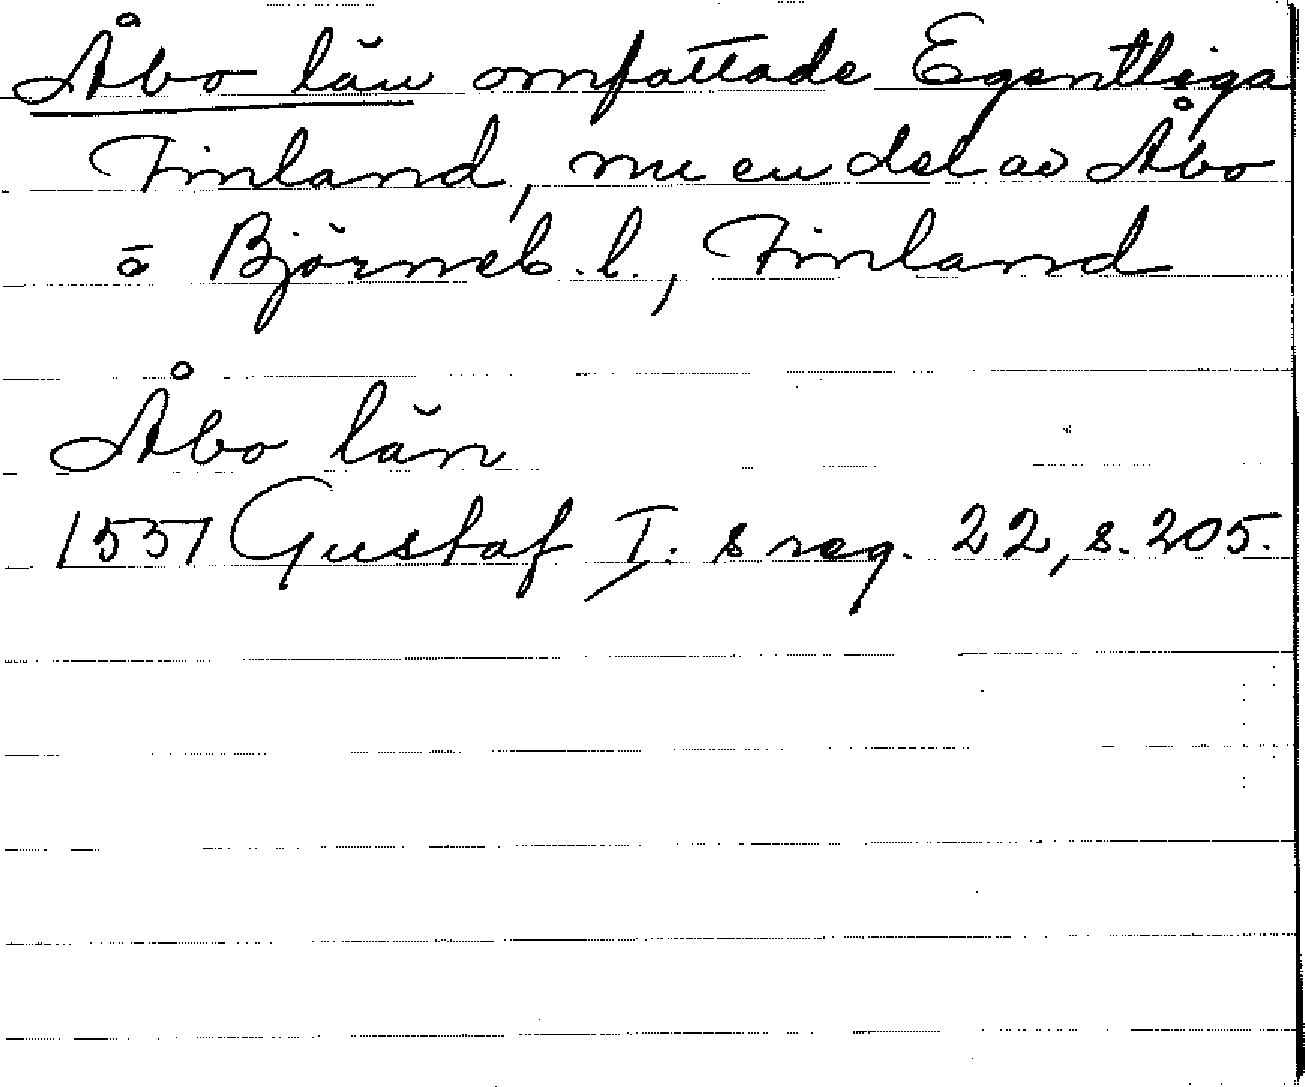 Åbo län omfattade Egentliga
Finland, nu en del av Åbo
o Björneb. l., Finland
Åbo län
1551 Gustaf I. s reg. 22, s. 205.